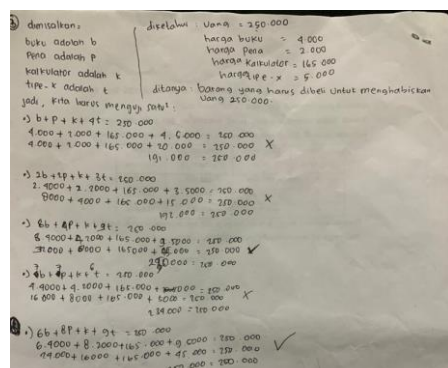 dimisalkan,
buku adalah b
pena adalah p
kalkulator adalah k
tipe-x adalah t
diketahui : uang = 250.000
harga buku = 4.000
harga pena = 2.000
harga kalkulator = 165 000
harga tipe-x = 5.000
ditanya : barang yang harus dibeli untuk menghabiskan
uang 250.000.
jadi, kita harus menguji satu²:
•) b + p + k + 4t = 250.000
4.000 + 2.000 + 165.000 + 4.5000 = 250 000
4.000 + 2.000 + 165.000 + 20.000 = 250.000 X
191.000 = 250.000
•) 2b + 2p + k + 3t = 250.000
2.4000 + 2.2000 + 165.000 + 3.5000 = 250.000
8000 + 4000 + 165.000 + 15.000 = 250.000 X
192.000 = 250.000
= 250 000
= 250 000
= 250.000 ✓
= 250.000
= 250.000
16 000 + 8000 + 165.000 + = 250.000 X
= 250 000
•) 6b + 8p + k + 9t = 250 000
6.4000 + 8.2000 + 165.000 + 9.5000 = 250.000
24.000 + 16000 + 165.000 + 45 000 = 250.000 ✓
250.000 = 250.000